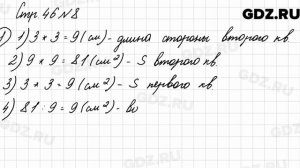 GDZ.RU
Стр. 46 №8
1) 1) 3 × 3 = 9 (см) - длина стороны второго кв.
2) 9 × 9 = 81 (см²) - S второго кв.
3) 3 × 3 = 9 (см²) - S первого кв.
4) 81 : 9 = 9 (см²) - во
GDZ.RU